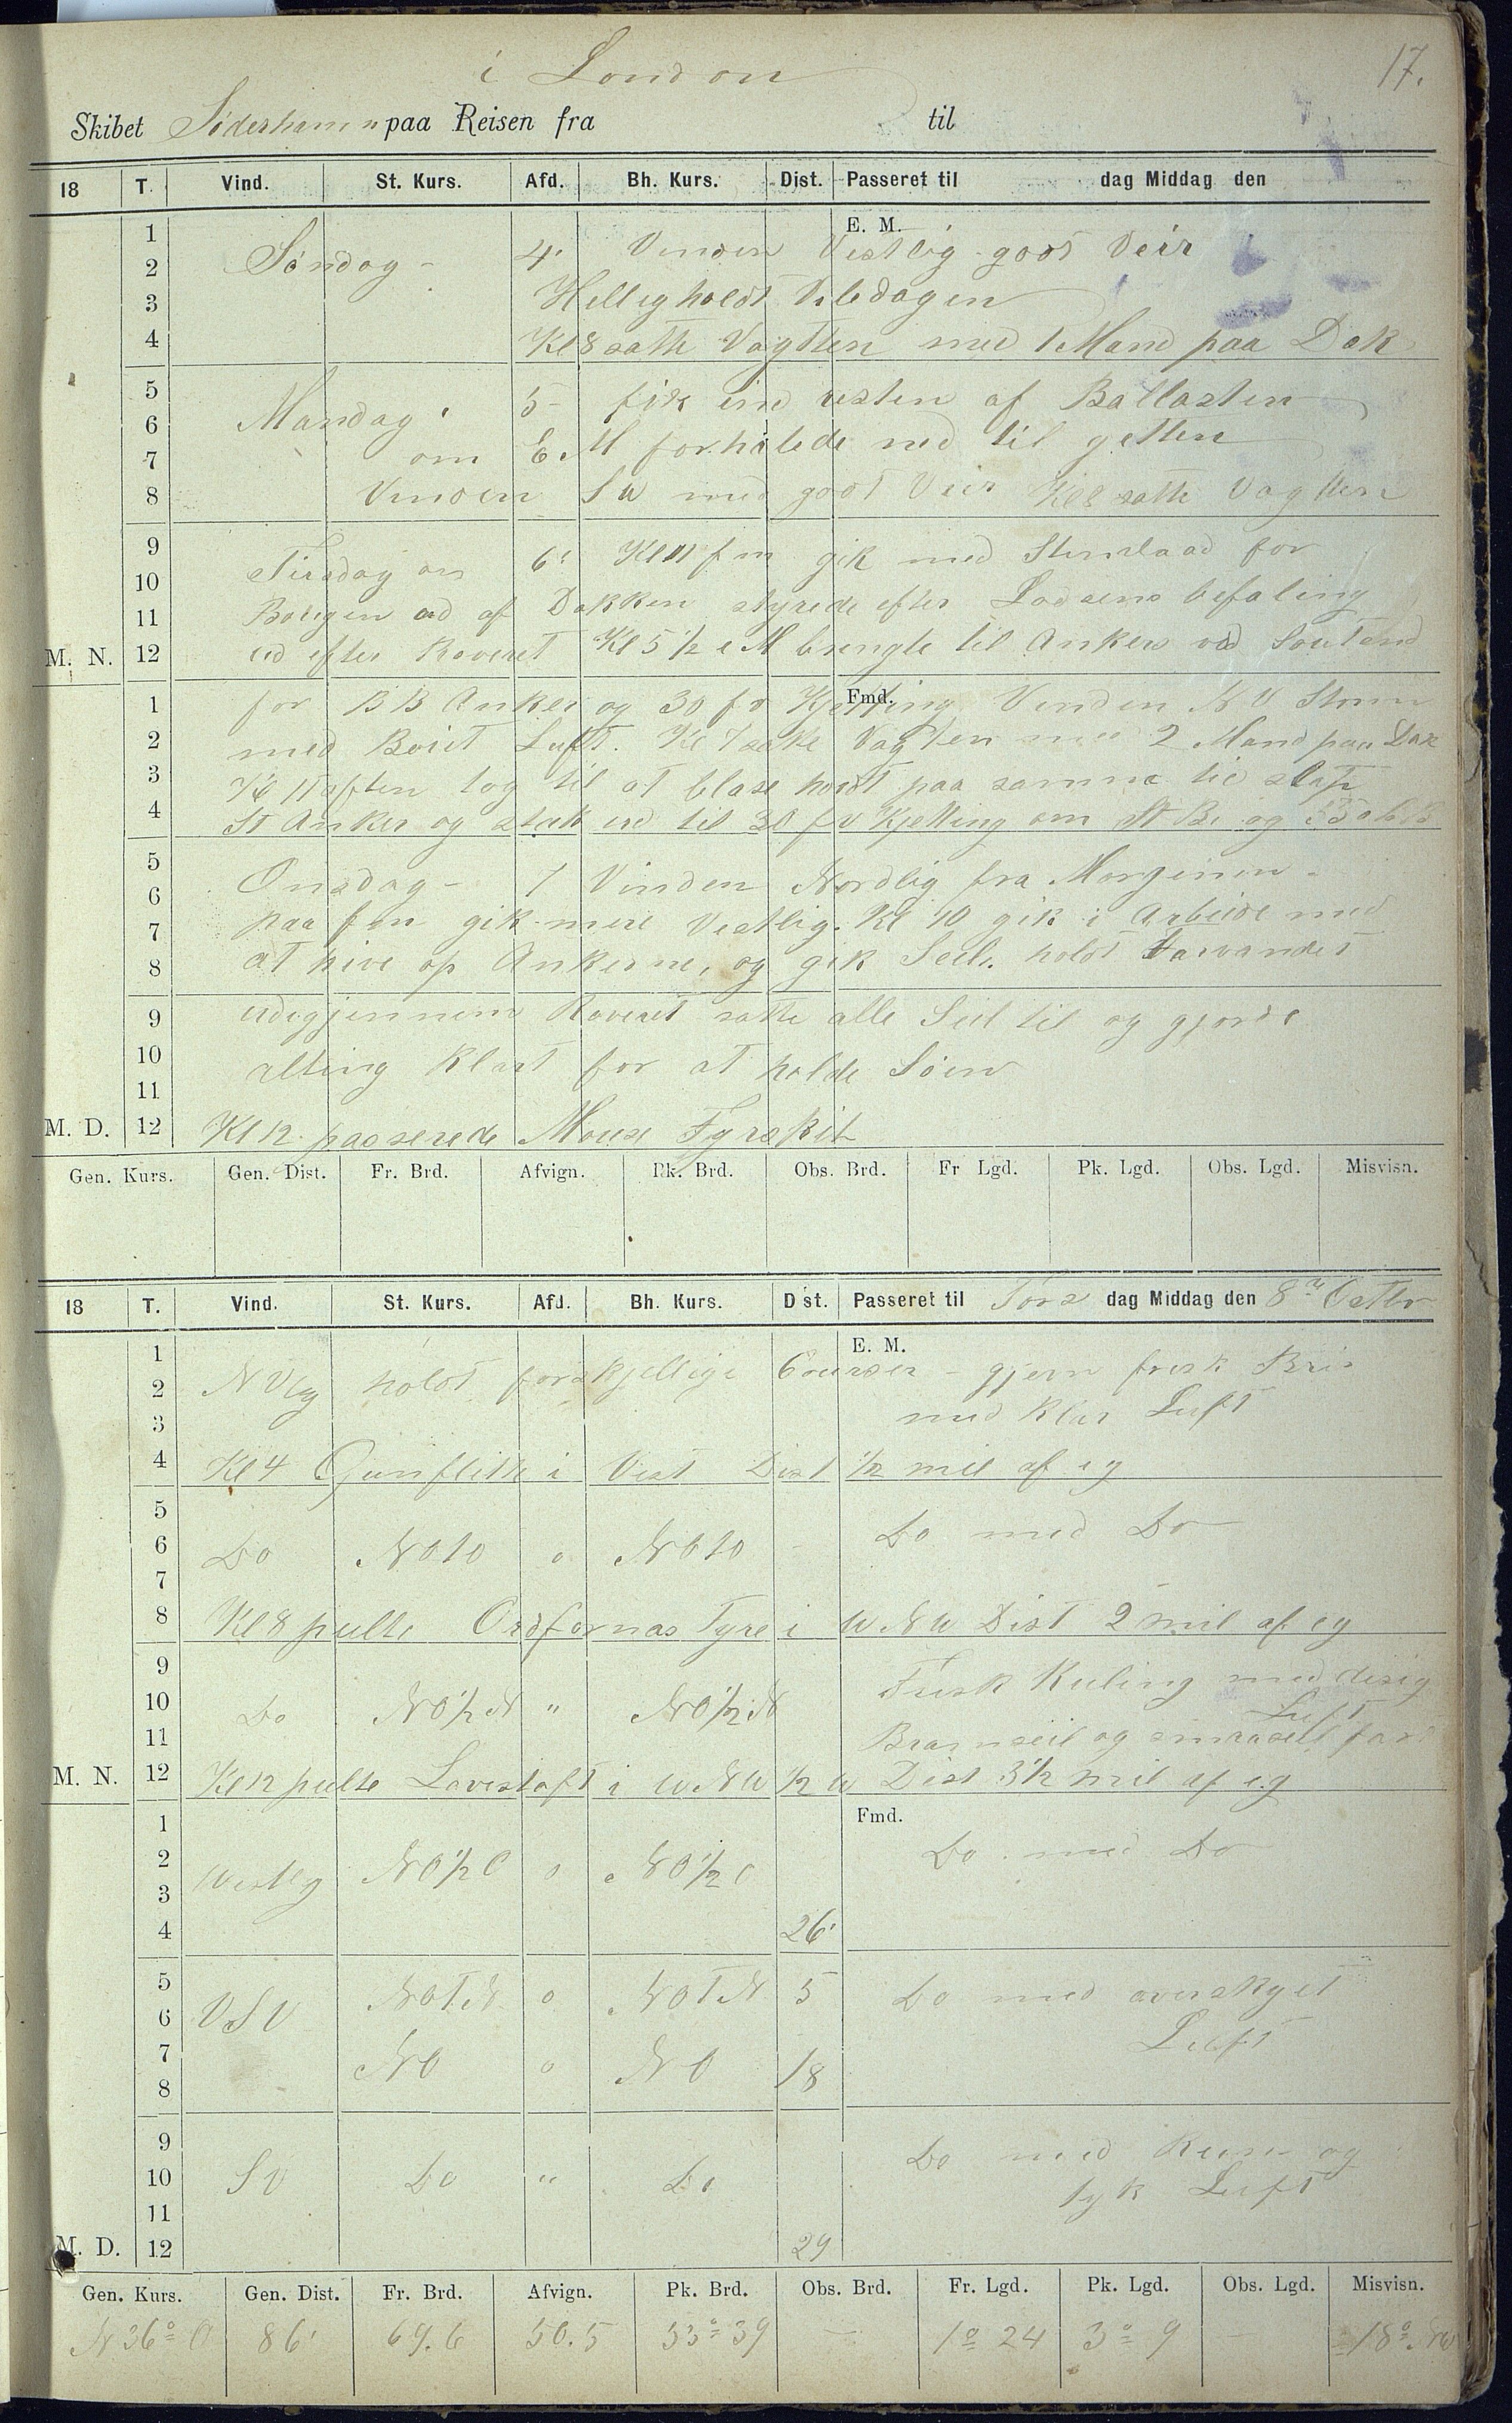 17.
i London
Skibet Söderhamn paa Reisen fra til
18 T. Vind. St. Kurs. Afd. Bh. Kurs. Dist. Passeret til dag Middag den
E. M.
1
2 Søndag - 4' Vinden Vestlig godt Veir
3 Helligholdt Viledagen
4 Kl 8 satte Vagtten med 1 Mand paa Dæk
5
6 Mandag 5 fik ind resten af Ballasten
7 om E.M forhalede ned til gatten
8 Vinden SW med godt Veir Kl 8 satte Vagtten
9 Tirsdag 6' Kl 11 fm gik med for
10
11 ud af Dokken styrede efter Lodsens befaling
M. N. 12 ud efter Reveret Kl 5 1/2 e M bragte til Ankers ved
Fmd.
1 for BB Anker og 30 fv Kjetting Vinden NV Storm
2 med Luft. Kl 7 satte Vagten med 2 Mand paa Dæk
3 Kl 11 aften tog til at blase hardt paa samme tid slap
4 St Anker og stak ud til 30 fv Kjetting om St B. og
5
6 Onsdag - 7 Vinden Nordlig fra Morgenen -
7 paa fm gik mere Vestlig. Kl 10 gik i Arbeide med
8 at hive op Ankerne, og gik Seil. holdt farvandet
9 udigjennem Reveret satte alle Seil til og gjorde
10 alting Klart for at holde Søen
11
M. D. 12 Kl 12 passerede Mouse Fyrskib
Gen. Kurs. Gen. Dist. Fr. Brd. Afvign. Pk. Brd. Obs. Brd. Fr Lgd. Pk. Lgd. Obs. Lgd. Misvisn.
18 T. Vind. St. Kurs. Afd. Bh. Kurs. Dist. Passeret til Tors dag Middag den 8de Octbr
E. M.
1
2 NVlg holdt forskjellige Courser - gjevn frisk Bris
3 med Klar Luft
4 Kl 4 Gunflitt i Vest Dist 1/2 mil af eg
5
6 Do NOtO o NOtO - Do med Do
7
8 Kl 8 peilte Ordfornas Fyre i W NW Dist 2 mil af eg
9 Frisk Kuling med disig
10 Do NO 1/2 N " NO 1/2 N Luft
11 Bramseil og smaaseil fast
M. N. 12 Kl 12 peilte Lovestoft i W NW 1/2 W Dist 3 1/2 mil af eg
Fmd.
1
2 Westlg NO 1/2 O o NO 1/2 O Do med Do
3
4 26'
5
6 VSV NOTN o NOTN 5 Do med overskyet
7 NO o NO 18 Luft
8
9
10 SV Do " Do Do med og
11 tyk Luft
M. D. 12 29
Gen. Kurs. Gen. Dist. Fr. Brd. Afvign. Pk. Brd. Obs. Brd. Fr. Lgd. Pk. Lgd. Obs. Lgd. Misvisn.
N 36° O 86' 69.6 50.5 53° 39 - 1° 24 3° 9 - 18° NW